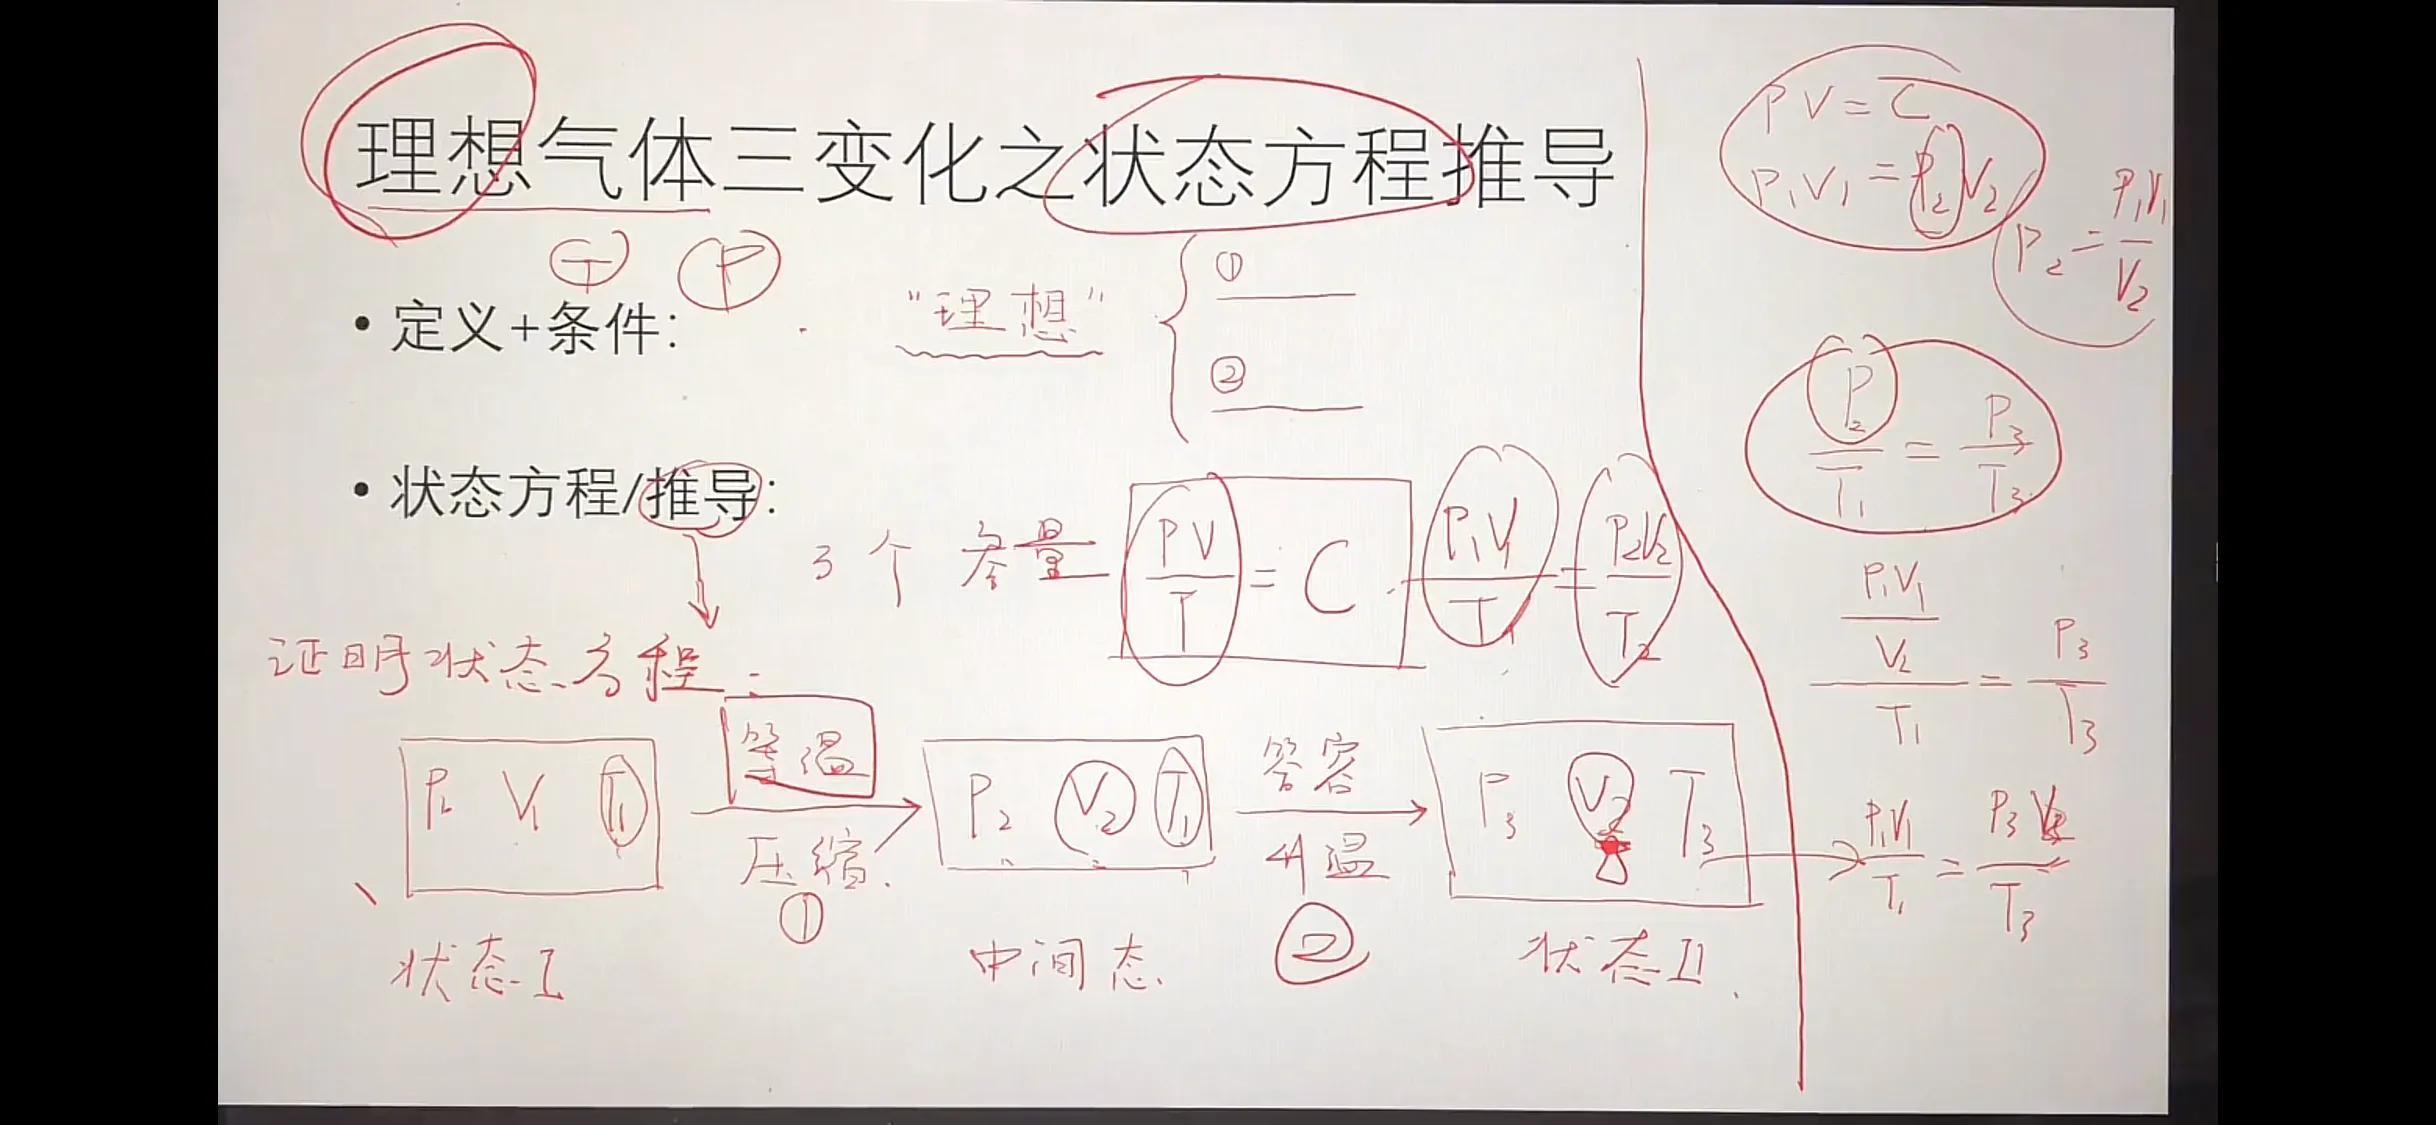 理想气体三变化之状态方程推导
T P
• 定义+条件:
"理想" { ① ②
• 状态方程/推导:
3个参量 PV/T = C P₁V₁/T₁ = P₂V₂/T₂
证明状态方程:
P₁ V₁ T₁ 等温 压缩 ① P₂ V₂ T₁ 等容 升温 ② P₃ V₂ T₃
状态I 中间态 状态II
PV=C
P₁V₁=P₂V₂
P₂=P₁V₁/V₂
P₂/T₁=P₃/T₃
(P₁V₁/V₂)/T₁=P₃/T₃
P₁V₁/T₁=P₃V₃/T₃